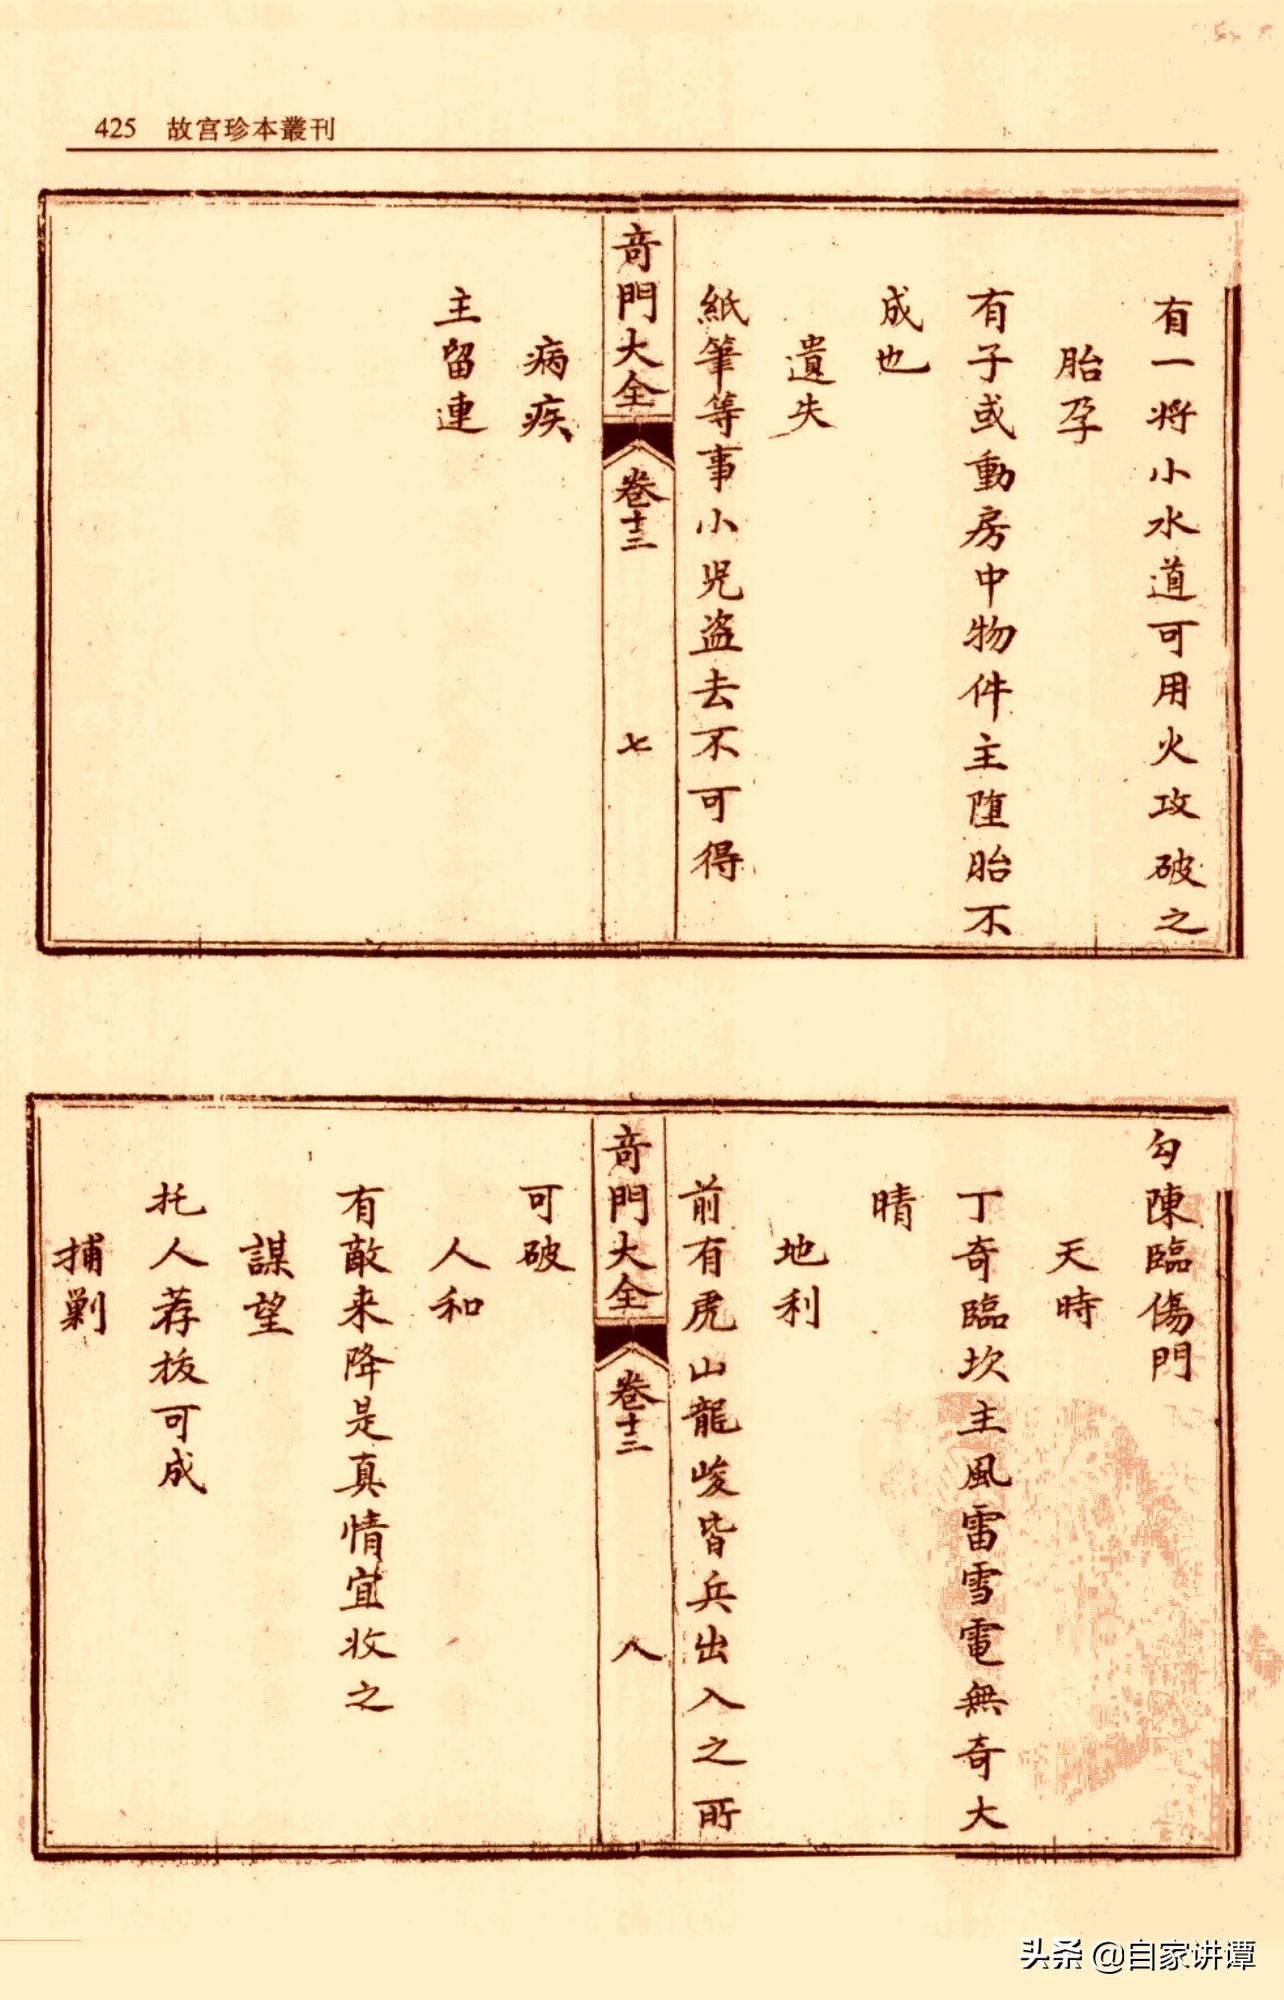 425 故宫珍本叢刊
有一将小水道可用火攻破之
胎孕
有子或動房中物件主堕胎不
成也
遺失
紙筆等事小児盗去不可得
奇門大全 卷十二 七
病疾
主留連
勾陳臨傷門
天時
丁奇臨坎主風雷雪電無奇大
晴
地利
前有虎山龍峻皆兵出入之所
奇門大全 卷十二 八
可破
人和
有敵来降是真情宜收之
謀望
托人荐拔可成
捕剿
头条 @自家讲谭